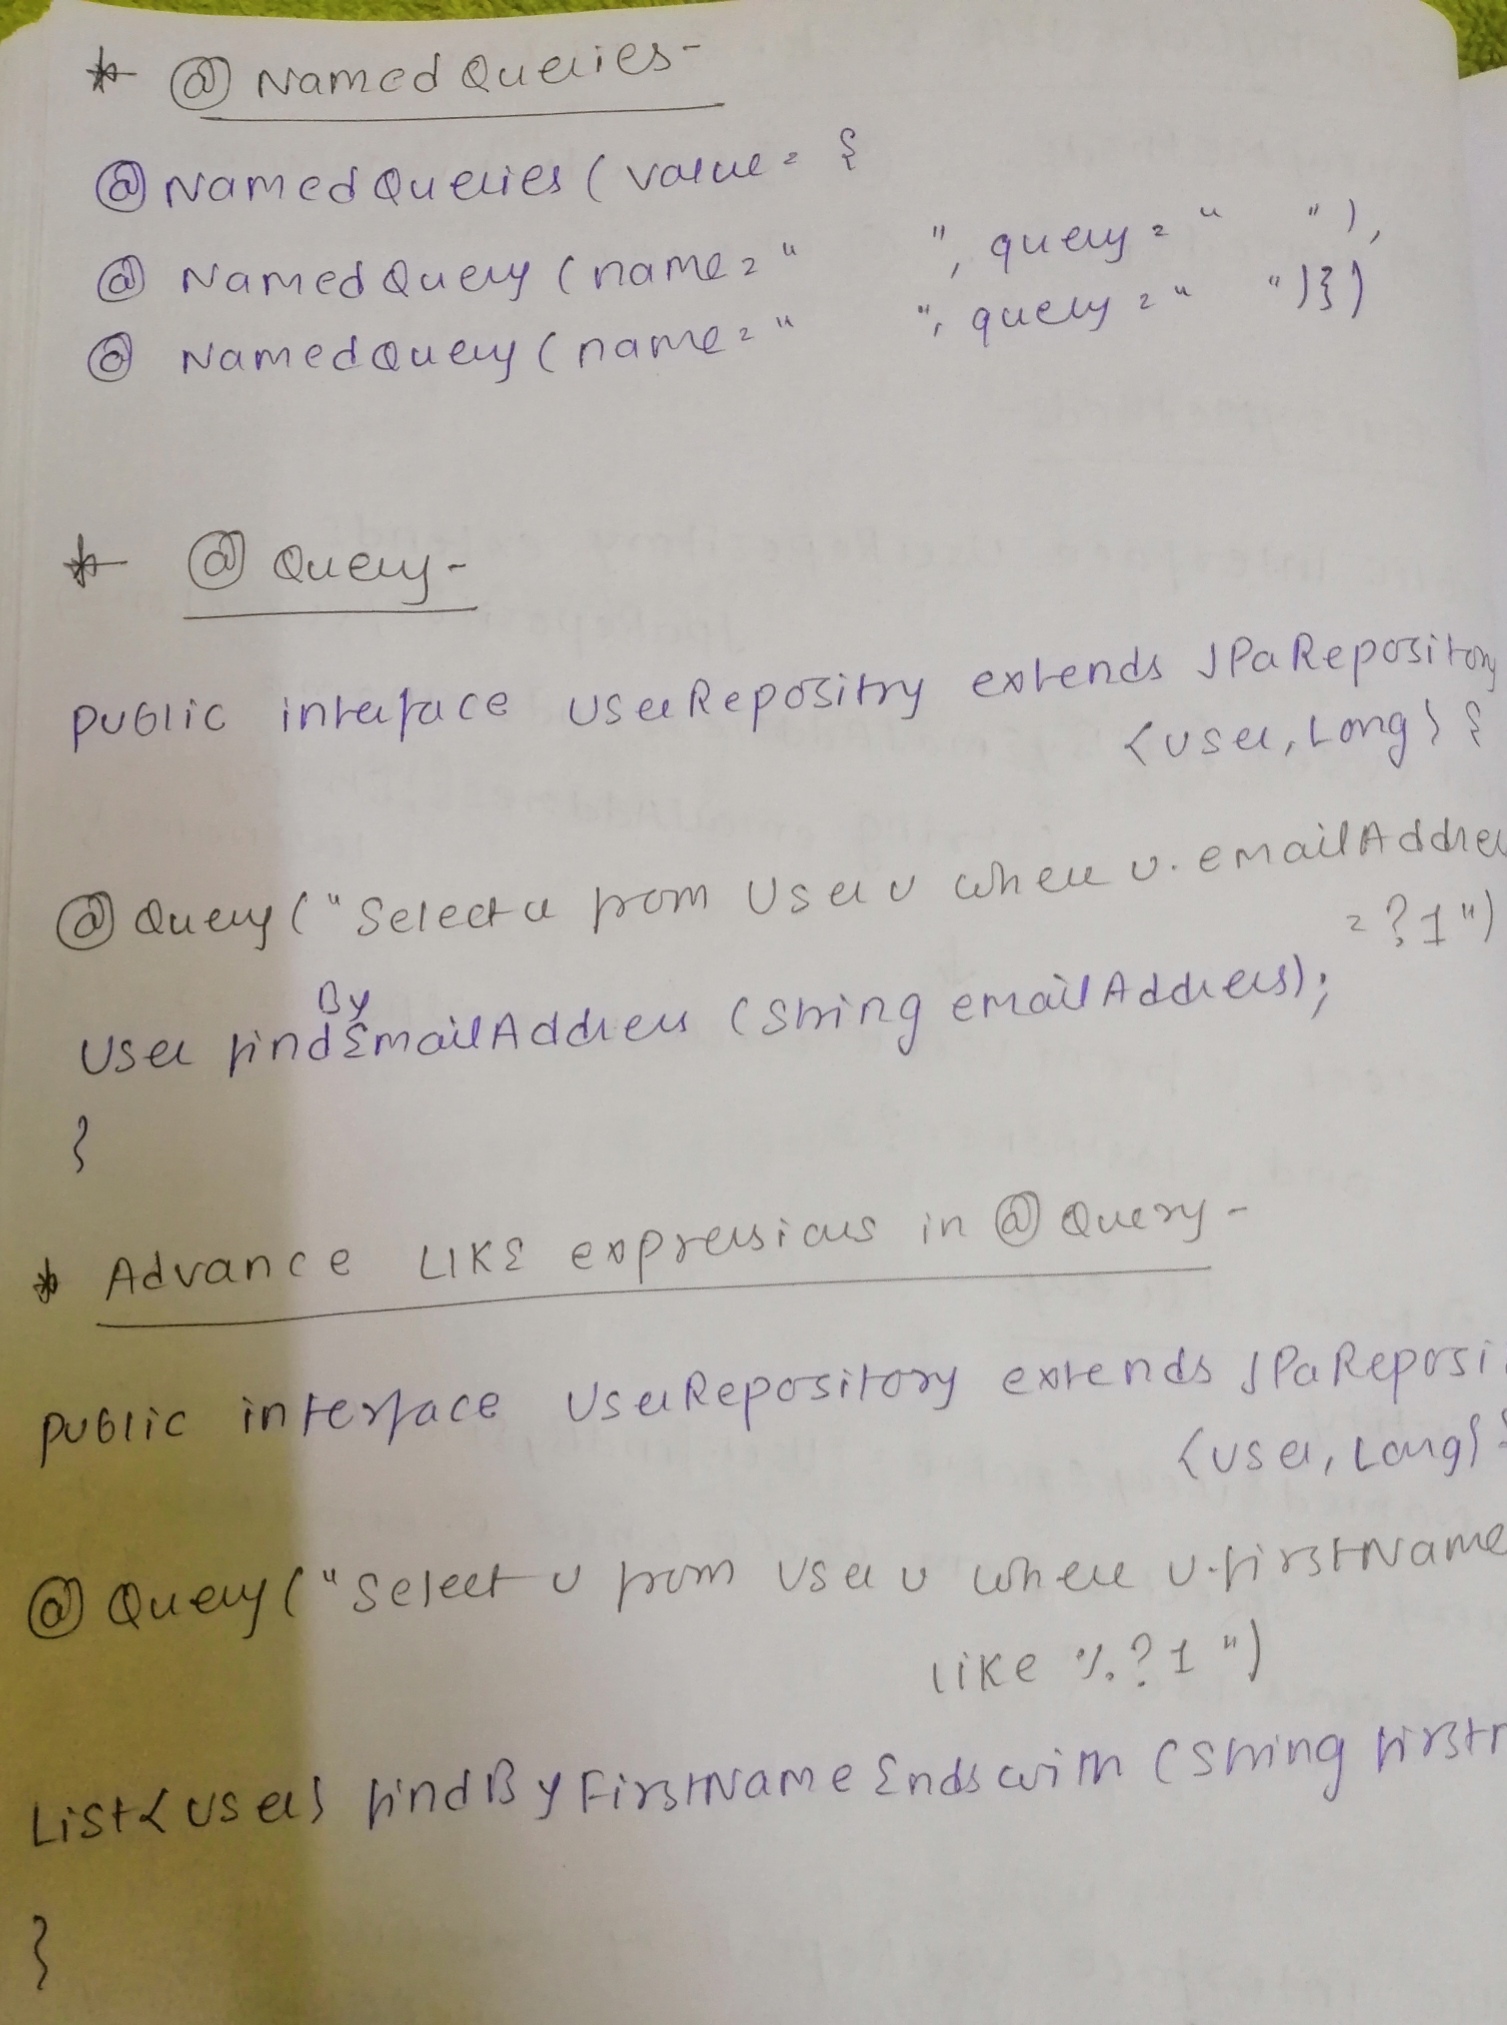 * @NamedQueries-
@NamedQueries(value = {
@NamedQuery(name = "        ", query = "    "),
@NamedQuery(name = "        ", query = "    ")})
* @Query-
public interface UserRepositry extends JPaRepository
<User, Long> {
@Query("Select u from User u where u.emailAddres
= ?1")
User findByEmailAddress (String emailAddress);
}
* Advance LIKE expressions in @Query-
public interface UserRepository extends JPaReposi
<User, Long> {
@Query("Select u from User u where u.firstName
like %?1")
List<User> findByFirstNameEndswith (String firstn
}